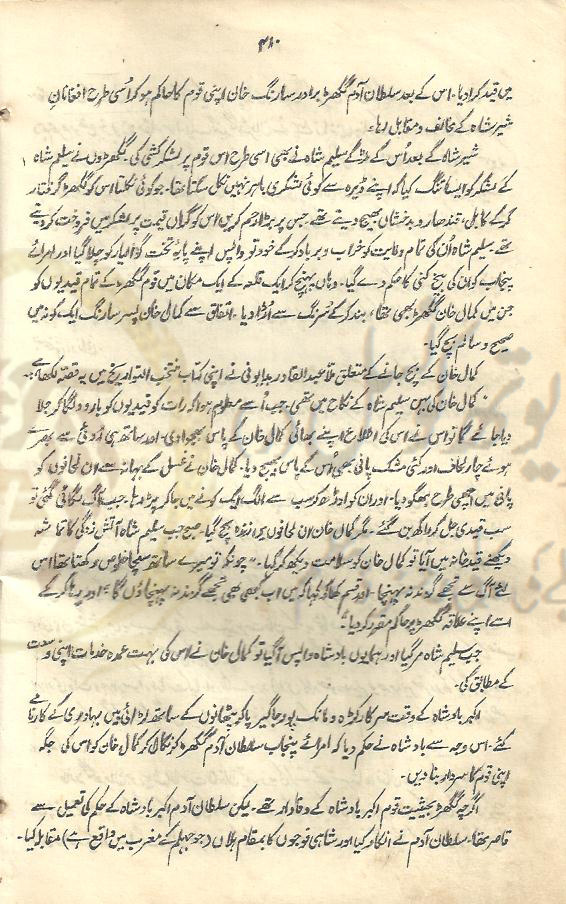 ۴۱۰
میں قید کرا دیا۔ اس کے بعد سلطان آدم گکھڑ برادر سارنگ خان اپنی قوم کا حاکم ہو کر اُسی طرح افغانانِ
شیر شاہ کے مخالف و مقابل رہا۔
شیر شاہ کے بعد اُس کے لڑکے سلیم شاہ نے بھی اسی طرح اس قوم پر لشکر کشی کی۔ گکھڑوں نے سلیم شاہ
کے لشکر کو ایسا تنگ کیا کہ اپنے ڈیرہ سے کوئی لشکری باہر نہیں نکل سکتا تھا۔ جو کوئی نکلتا اس کو گکھڑ گرفتار
کر کے کابل، قندھار و بدخشاں بھیج دیتے تھے، جس پر بڑا رحم کریں اس کو گراں قیمت پر لشکر میں فروخت کر دیتے
تھے۔ سلیم شاہ اُن کی تمام ولایت کو خراب و برباد کر کے خود تو واپس اپنے پایۂ تخت گوالیار کو چلا گیا اور امرائے
پنجاب کو ان کی بیخ کنی کا حکم دے گیا۔ وہاں پہنچ کر ایک قلعہ کے ایک مکان میں قوم گکھڑ کے تمام قیدیوں کو
جن میں کمال خان گکھڑ بھی تھا، بند کر کے سُرنگ سے اُڑا دیا۔ اتفاق سے کمال خان پسر سارنگ ایک کونہ میں
صحیح و سالم بچ گیا۔
کمال خان کے بچ جانے کے متعلق ملا عبدالقادر بدایونی نے اپنی کتاب منتخب التواریخ میں یہ قصہ لکھا ہے
کمال خان کی بہن سلیم شاہ کے نکاح میں تھی۔ جب اُسے معلوم ہوا کہ رات کو قیدیوں کو بارود لگا کر جلا
دیا جائے گا تو اس نے اس کی اطلاع اپنے بھائی کمال خان کے پاس بھجوا دی۔ اور ساتھ ہی رُوئی سے بھرے
ہوئے چار لحاف اور کئی مشک پانی بھی اُس کے پاس بھیج دیا۔ کمال خان نے غسل کے بہانہ سے ان لحافوں کو
پانی میں اچھی طرح بھگو دیا۔ اور ان کو اوڑھ کر سب سے الگ ایک کونے میں جا کر پڑ رہا۔ جب آگ لگائی گئی تو
سب قیدی جل کر راکھ بن گئے۔ مگر کمال خان ان لحافوں میں زندہ بچ گیا۔ صبح جب سلیم شاہ آتش زدگی کا تماشہ
دیکھنے قید خانہ میں آیا تو کمال خان کو سلامت دیکھ کر کہا۔ "چونکہ تو میرے ساتھ سچا خلوص رکھتا تھا اس
لئے آگ سے تجھے گزند نہ پہنچا۔ اور قسم کھا کر کہا کہ میں اب کبھی بھی تجھے گزند نہ پہنچاؤں گا" اور رہا کر کے
اسے اپنے علاقہ گکھڑ پر حاکم مقرر کر دیا۔"
جب سلیم شاہ مر گیا اور ہمایوں بادشاہ واپس آ گیا تو کمال خان نے اس کی بہت عمدہ خدمات اپنی وسعت
کے مطابق کی۔
اکبر بادشاہ کے وقت سرکار کڑہ و مانک پور جاگیر پا کر پٹھانوں کے ساتھ لڑائی میں بہادری کے کارنامے
کئے۔ اس وجہ سے بادشاہ نے حکم دیا کہ امرائے پنجاب سلطان آدم گکھڑ کو نکال کر کمال خان کو اس کی جگہ
اپنی قوم کا سردار بنا دیں۔
اگرچہ گکھڑ بحیثیت قوم اکبر بادشاہ کے وفادار تھے۔ لیکن سلطان آدم اکبر بادشاہ کے حکم کی تعمیل سے
قاصر تھا۔ سلطان آدم نے انکار کیا اور شاہی فوجوں کا بمقام ہلاں (جو جہلم کے مغرب میں واقع ہے) مقابلہ کیا۔